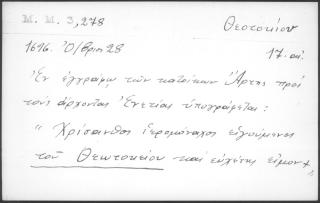 M. M. 3,278
Θεοτοκίου
1696. Ὀ/βριο 28
17. αἰ.
Ἐν ἐγγράφῳ τῶν κατοίκων Ἄρτης πρὸς
τοὺς ἄρχοντας Ἑνετίας ὑπογράφεται:
"Χρίσανθος ἱερομόναχος εἰγούμενος
τοῦ Θεωτοκείου καὶ εὐχέτης εἰμον